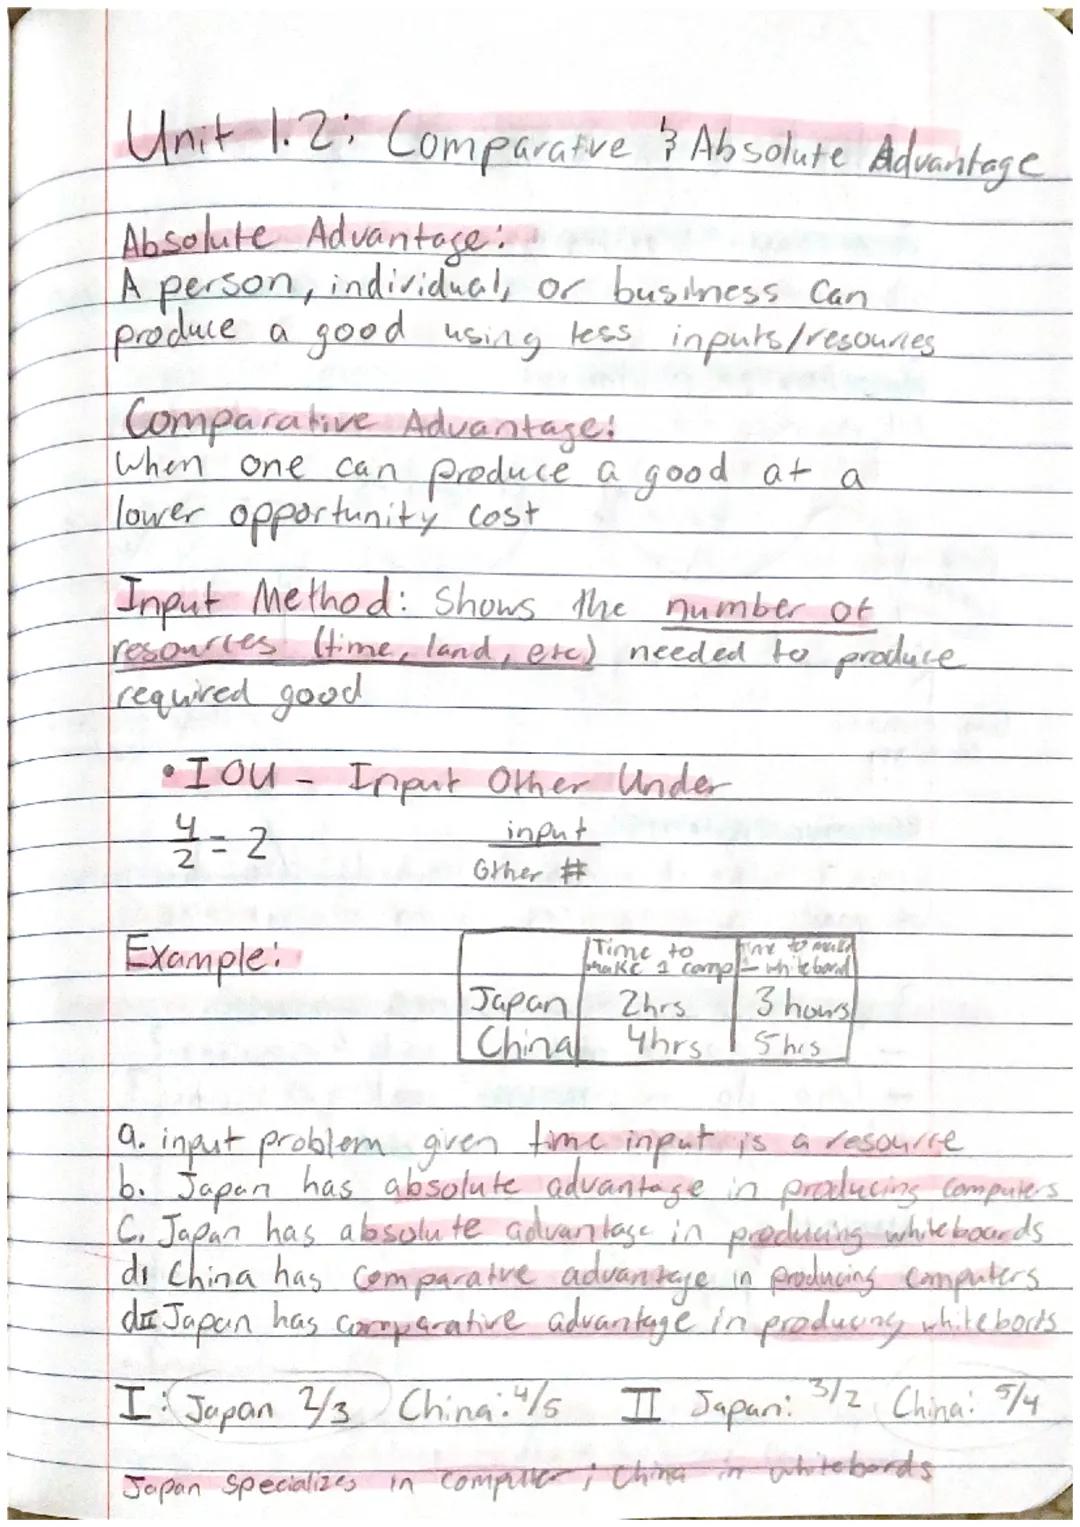 Unit 1.2: Comparatve & Absolute Advantage
Absolute Advantage:
A person, individual, or business can
produce a good using less inputs/resources
Comparative Advantage:
When one can produce a good at a
lower opportunity cost
Input Method: Shows the number of
resources (time, land, etc) needed to produce
required good
• IOU - Input Other Under
4/2 = 2 input / Other #
Example:
Time to make 1 comp
Time to make 1 whitebord
Japan 2hrs 3 hours
China 4hrs 5hrs
a. input problem given time input is a resource
b. Japan has absolute advantage in producing computers
C. Japan has absolute advantage in producing whiteboards
dI China has comparatve advantage in producing computers
dII Japan has comparative advantage in producing whitebords
I: Japan 2/3 China: 4/5 II Japan: 3/2 China: 5/4
Japan specializes in computer; China in whitebords